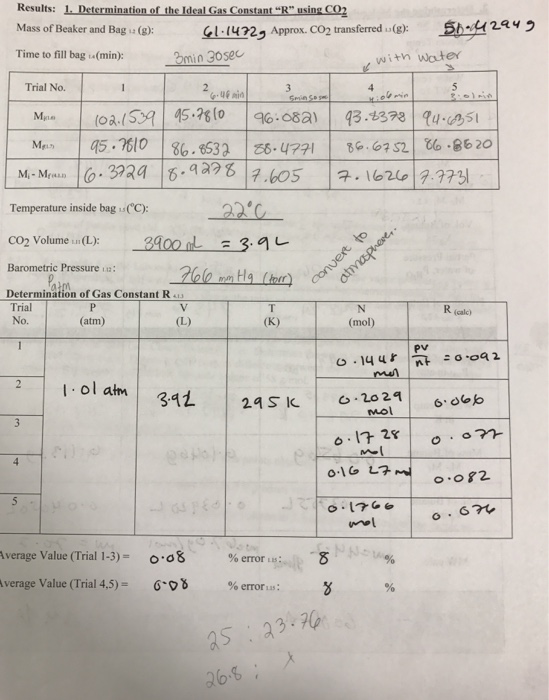 Results: 1. Determination of the Ideal Gas Constant "R" using CO2
Mass of Beaker and Bag (g): 61.1472g Approx. CO2 transferred (g):
Time to fill bag (min): 3min 30sec
with water
Trial No. 1 2 3 4 5
6.48 min
102.1539 95.7810 96.0821 93.8378 94.6351
95.7810 86.8532 88.4771 86.6752 86.8620
6.3729 8.9278 7.605 7.1626 7.7731
Temperature inside bag (°C): 22°C
CO2 Volume (L): 3900 mL = 3.9L
Barometric Pressure : 766 mmHg (torr)
convert to
atmosphere.
Patm
Determination of Gas Constant R
Trial No. P (atm) V (L) T (K) N (mol) R (calc)
1 0.1448 mol PV/nt = 0.092
2 1.01 atm 3.9L 295K 0.2029 mol 0.066
3 0.1728 mol 0.077
4 0.1627 mol 0.082
5 0.1766 mol 0.076
Average Value (Trial 1-3) = 0.08 % error : 8 %
Average Value (Trial 4,5) = 0.08 % error : 8 %
25 : 23.76
26.8 : x